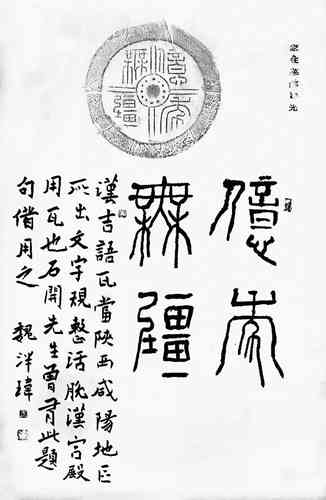 億年
無彊
億年
無彊
漢吉語瓦當陝西咸陽地區
所出文字規整活脫漢宮殿
用瓦也石開先生曾有此題
句借用之 魏泮瑋